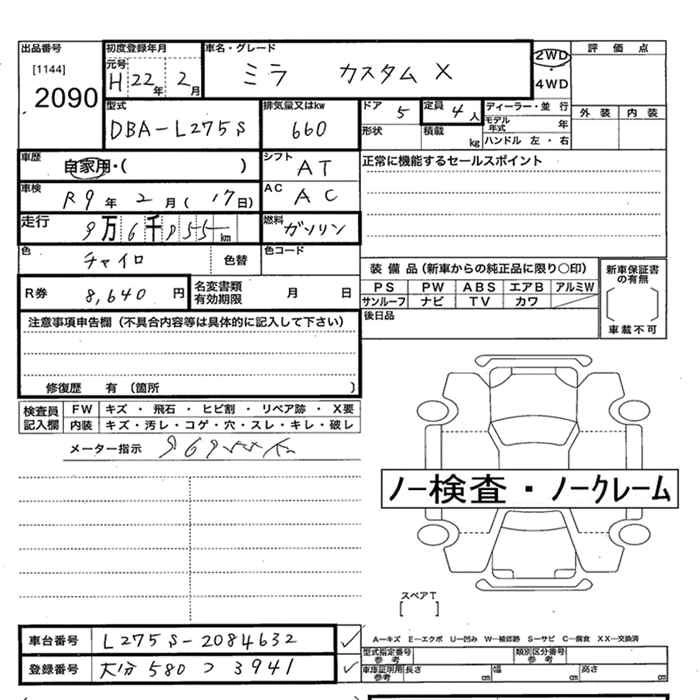 出品番号 初度登録年月 車名・グレード 評価点
[1144] 元号 H 22年 2月 ミラ カスタム X 2WD・4WD
2090
型式 排気量又はkw ドア 5 定員 4人 ディーラー・並行 外装 内装
DBA-L275S 660 形状 積載 kg モデル年式 年
ハンドル 左・右
車歴 自家用・( ) シフト AT 正常に機能するセールスポイント
車検 R9年 2月 (17日) AC AC
走行 9万6千955km 燃料 ガソリン
色 チャイロ 色替 色コード
装備品(新車からの純正品に限り〇印) 新車保証書の有無
R券 8,640円 名変書類有効期限 月 日 PS PW ABS エアB アルミW
サンルーフ ナビ TV カワ 車載不可
注意事項申告欄(不具合内容等は具体的に記入して下さい) 後日品
修復歴 有(箇所 )
検査員記入欄 FW キズ・飛石・ヒビ割・リペア跡・X要
内装 キズ・汚レ・コゲ・穴・スレ・キレ・破レ
メーター指示
ノー検査・ノークレーム
スペアT
[ ]
車台番号 L275S-2084632 A―キズ E―エクボ U―凹み W―補修跡 S―サビ C―腐食 XX―交換済
型式指定番号 参考 類別区分番号 参考
登録番号 大分 580 つ 3941 車庫証明用 参考 長さ cm 幅 cm 高さ cm